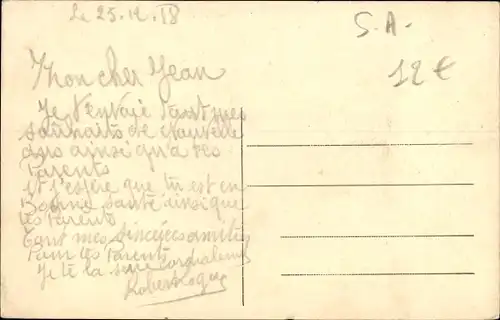 Le 25.12.18
S.A-
12€
Mon cher Jean
Je t'envoie tout mes
souhaits de
ans ainsi qu'a tes
Parents
et j'espère que tu est en
Bonne santé ainsi que
tes Parents
mes sincères amitiés
Pour tes Parents
Je te la serre cordialement
Robert